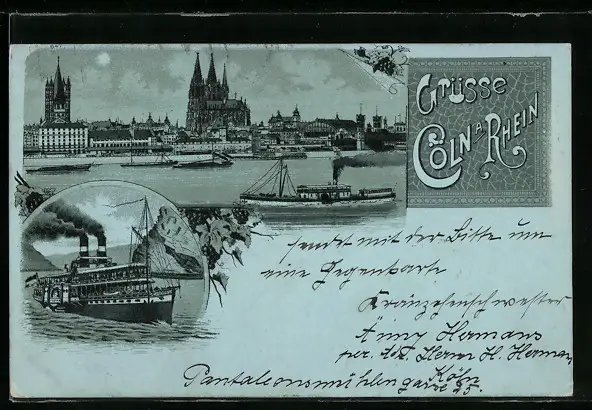 Grüsse
Cöln a. Rhein
sendet mit der Bitte um
eine Gegenkarte
Kränzchenschwester
Änny Hermans
per. Adr. Herrn H. Herman
Köln
Pantaleonsmühlengasse 25.